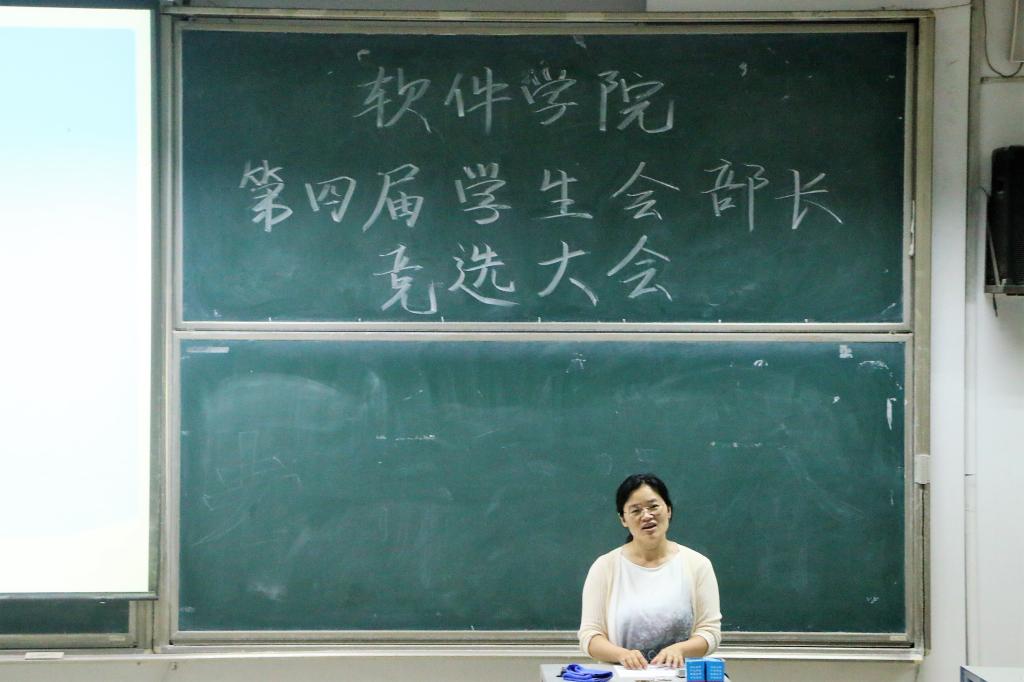 软件学院
第四届学生会部长
竞选大会